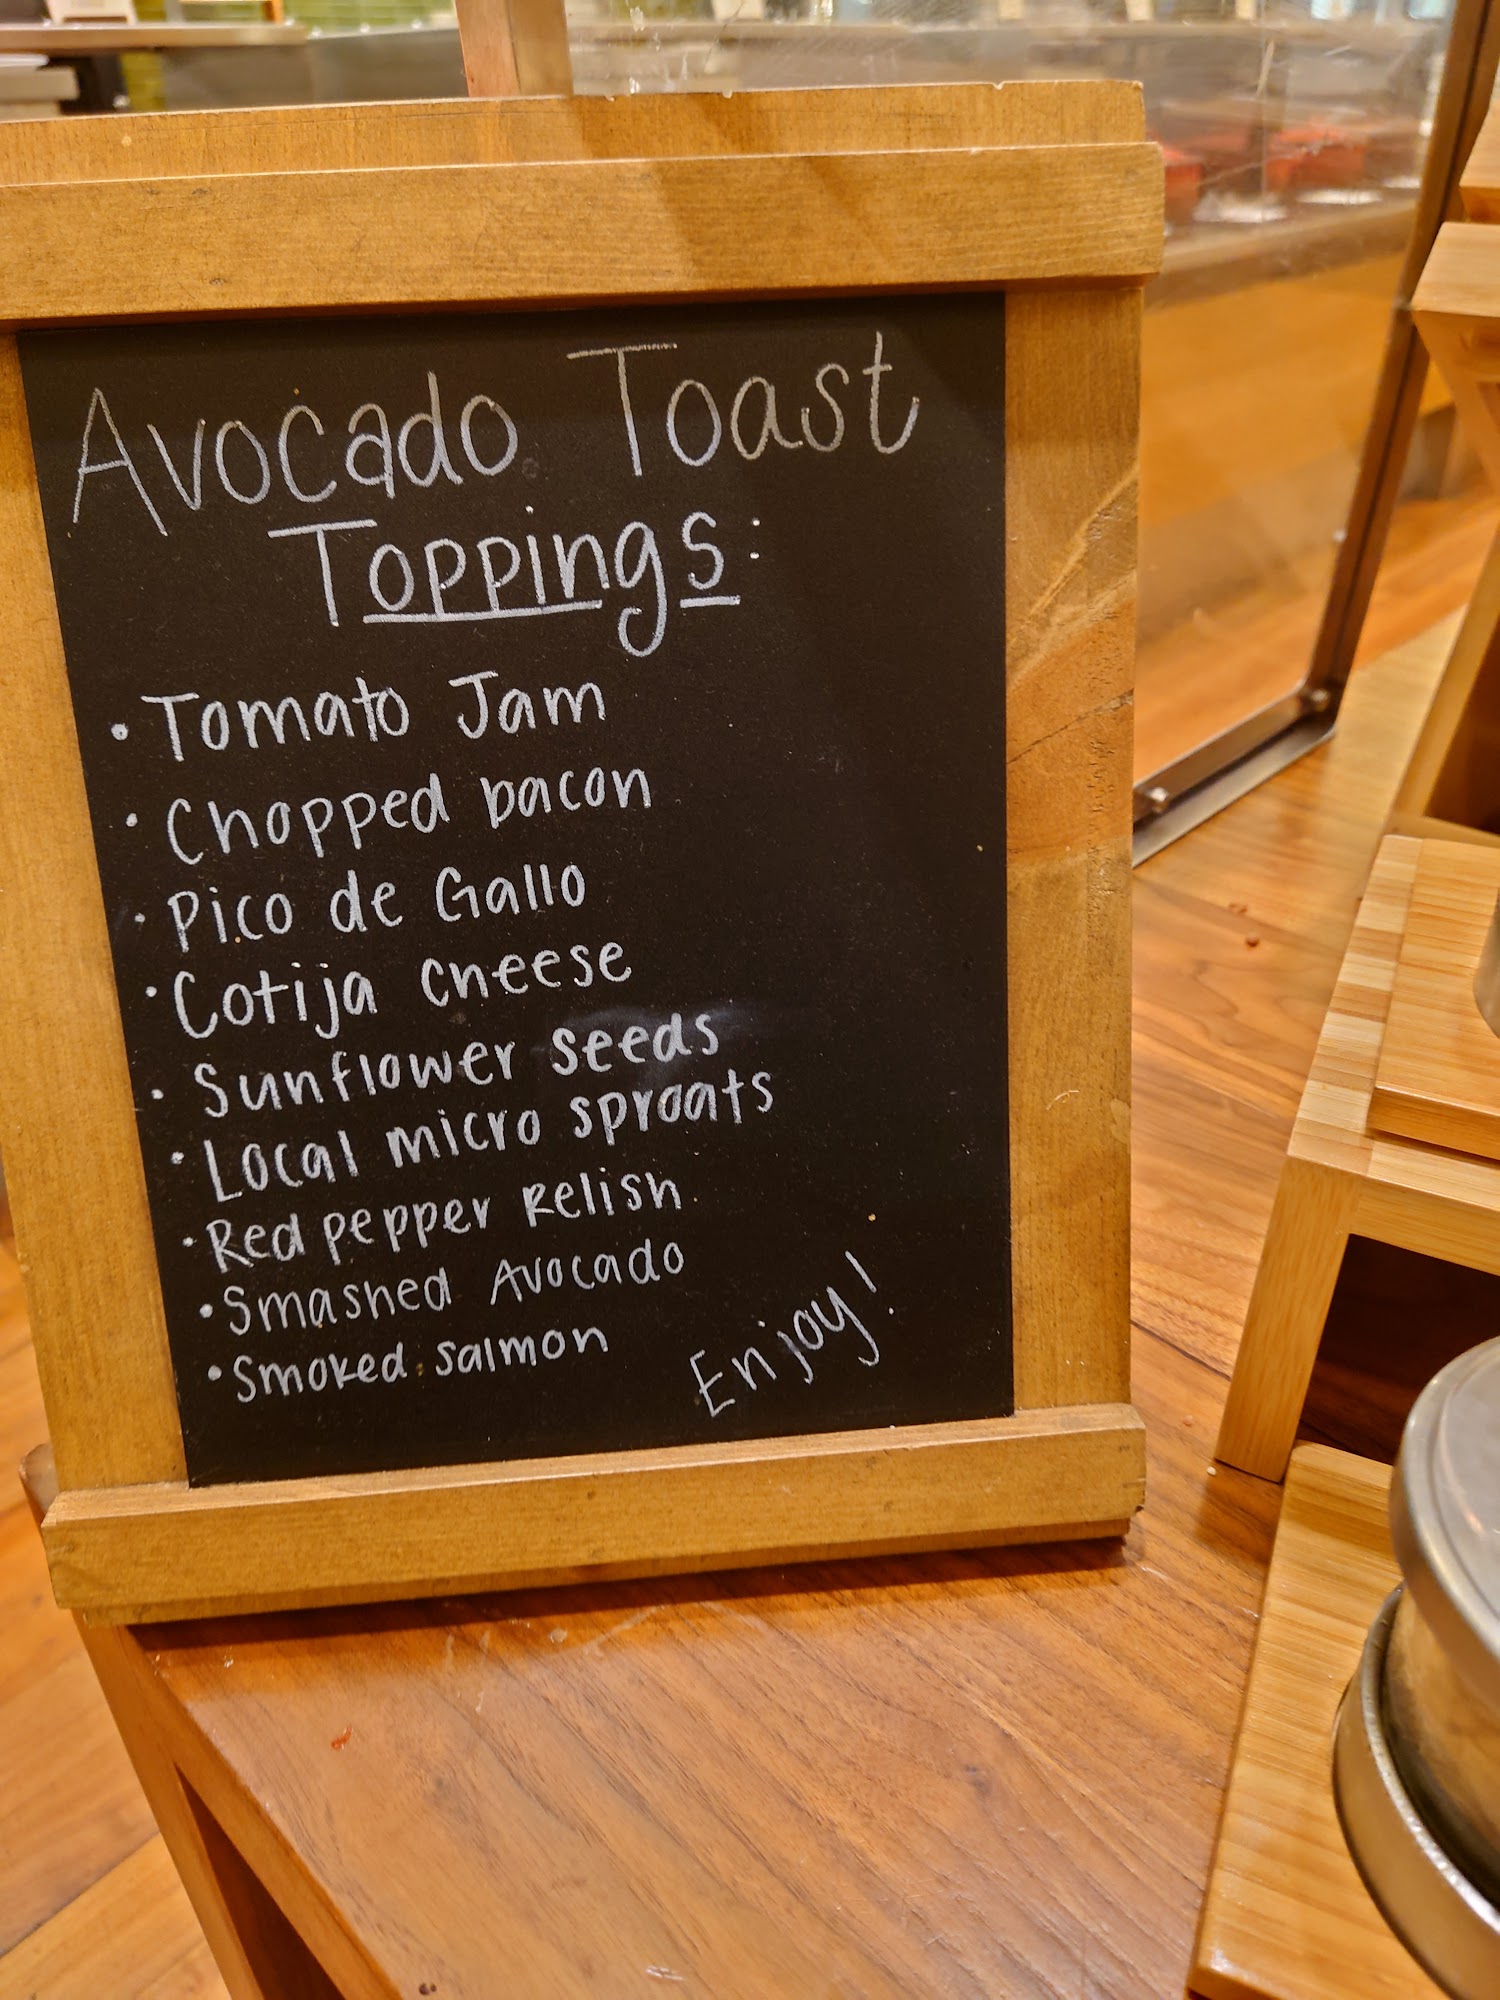 Avocado Toast
Toppings:
• Tomato Jam
• Chopped bacon
• Pico de Gallo
• Cotija cheese
• Sunflower seeds
• Local micro sproats
• Red pepper Relish
• Smashed Avocado
• Smoked salmon
Enjoy!